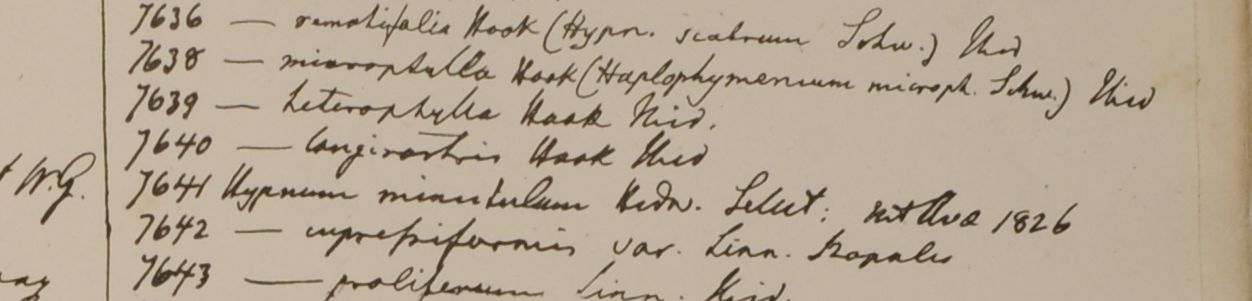 7636 — remotifolia Hook (Hypn. scabrum Schw.) Ibid
7638 — microphylla Hook (Haplophymenium microph. Schw.) Ibid
7639 — heterophylla Hook Ibid.
7640 — longirostris Hook Ibid
W.G.
7641 Hypnum minutulum Hedw. Select: Ava 1826
7642 — cupressiformis var. Linn. Napalis
7643 — proliferum Linn. Ibid.